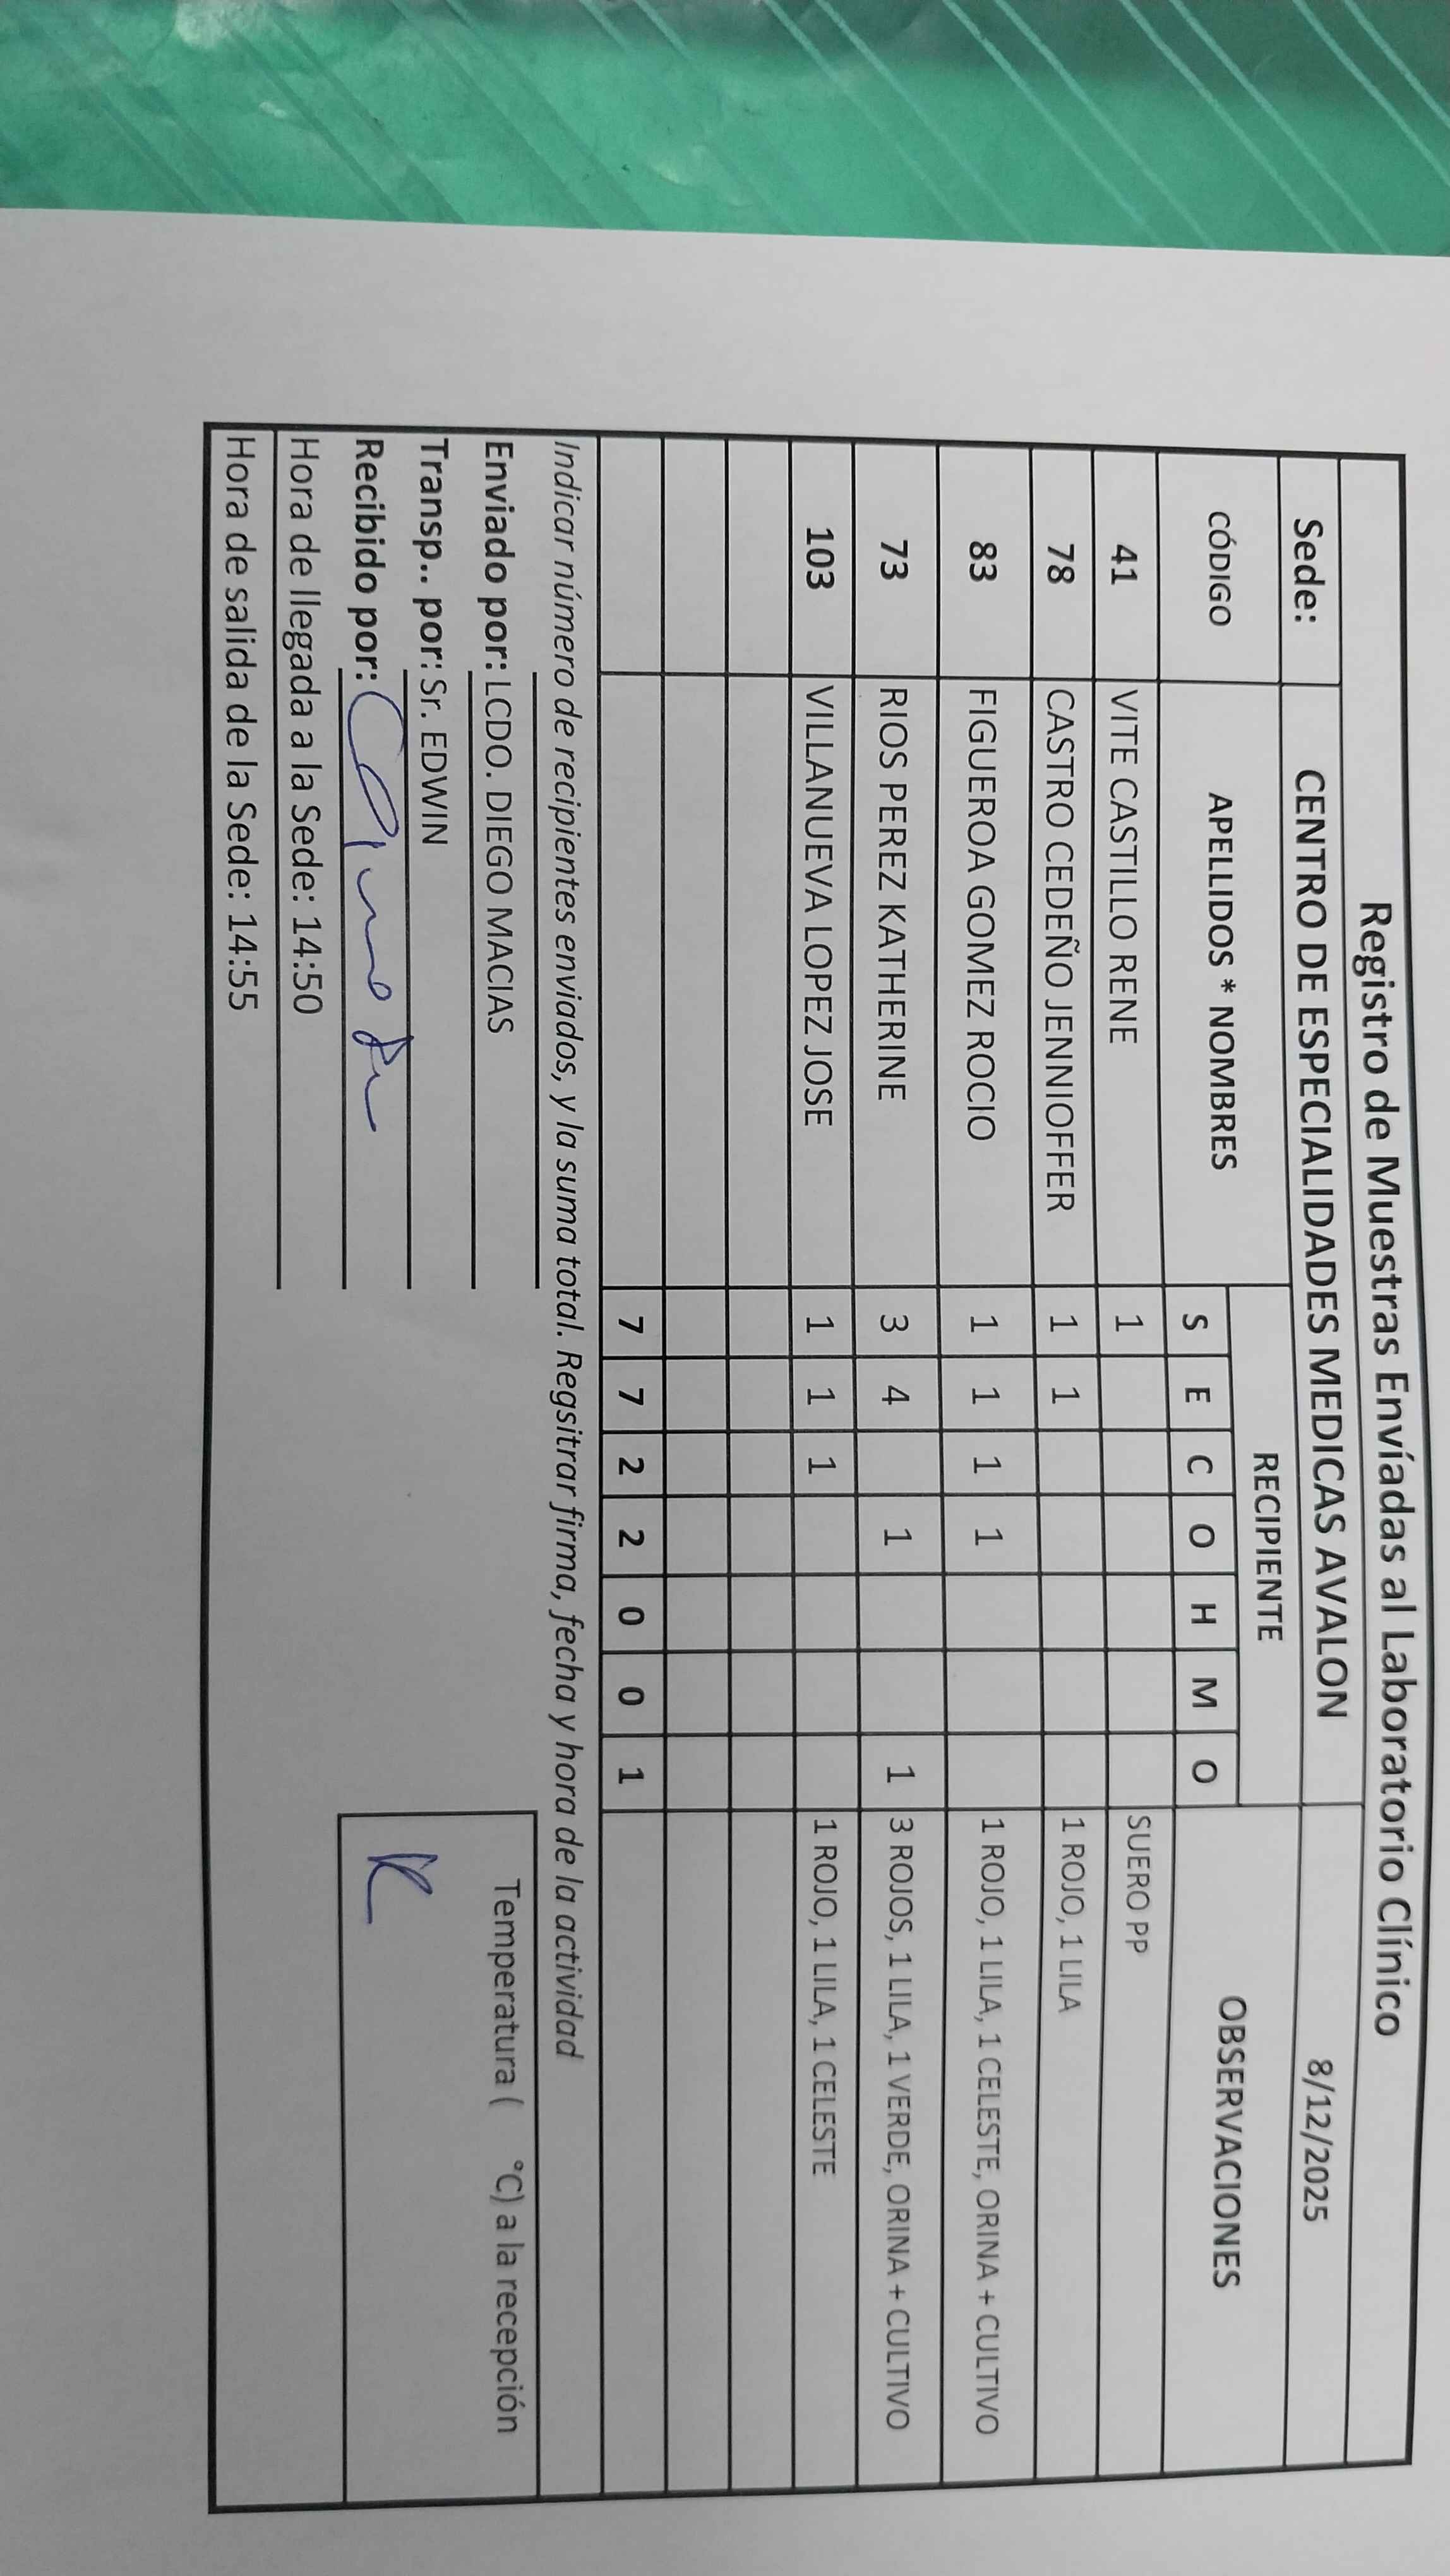 Registro de Muestras Envíadas al Laboratorio Clínico
Sede: CENTRO DE ESPECIALIDADES MEDICAS AVALON 8/12/2025
CÓDIGO APELLIDOS * NOMBRES RECIPIENTE OBSERVACIONES
S E C O H M O
41 VITE CASTILLO RENE 1 SUERO PP
78 CASTRO CEDEÑO JENNIOFFER 1 1 1 ROJO, 1 LILA
83 FIGUEROA GOMEZ ROCIO 1 1 1 1 1 ROJO, 1 LILA, 1 CELESTE, ORINA + CULTIVO
73 RIOS PEREZ KATHERINE 3 4 1 1 3 ROJOS, 1 LILA, 1 VERDE, ORINA + CULTIVO
103 VILLANUEVA LOPEZ JOSE 1 1 1 1 ROJO, 1 LILA, 1 CELESTE
7 7 2 2 0 0 1
Indicar número de recipientes enviados, y la suma total. Regsitrar firma, fecha y hora de la actividad
Enviado por: LCDO. DIEGO MACIAS
Temperatura ( °C) a la recepción
Transp.. por: Sr. EDWIN
Recibido por:
Hora de llegada a la Sede: 14:50
Hora de salida de la Sede: 14:55